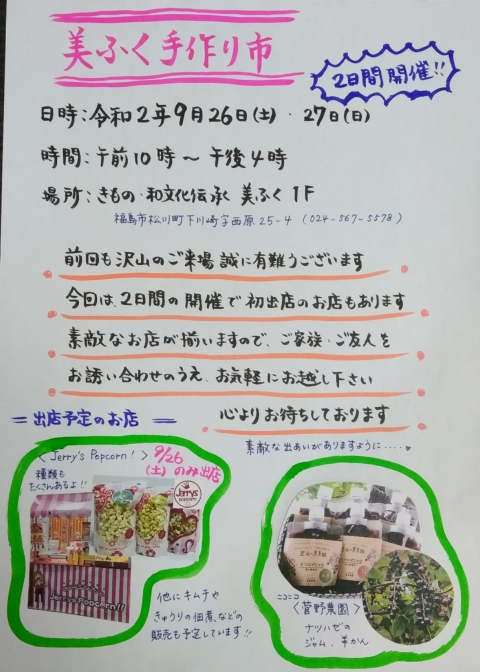 美ふく手作り市
2日間開催!!
日時:令和2年9月26日(土)・27日(日)
時間:午前10時～午後4時
場所:きもの・和文化伝承 美ふく 1F
福島市松川町下川崎字西原25-4 (024-567-5578)
前回も沢山のご来場誠に有難うございます
今回は、2日間の開催で初出店のお店もあります
素敵なお店が揃いますので、ご家族・ご友人を
お誘い合わせのうえ、お気軽にお越し下さい
心よりお待ちしております
素敵な出あいがありますように‥‥
＝出店予定のお店＝
〈Jerry's Popcorn!〉
9/26
(土)のみ出店
種類も
たくさんあるよ!!
Jerry's
popcorn
他にキムチや
きゅうりの佃煮などの
販売も予定しています!!
ニコニコ
〈菅野農園〉
ナツハゼの
ジャム、羊かん